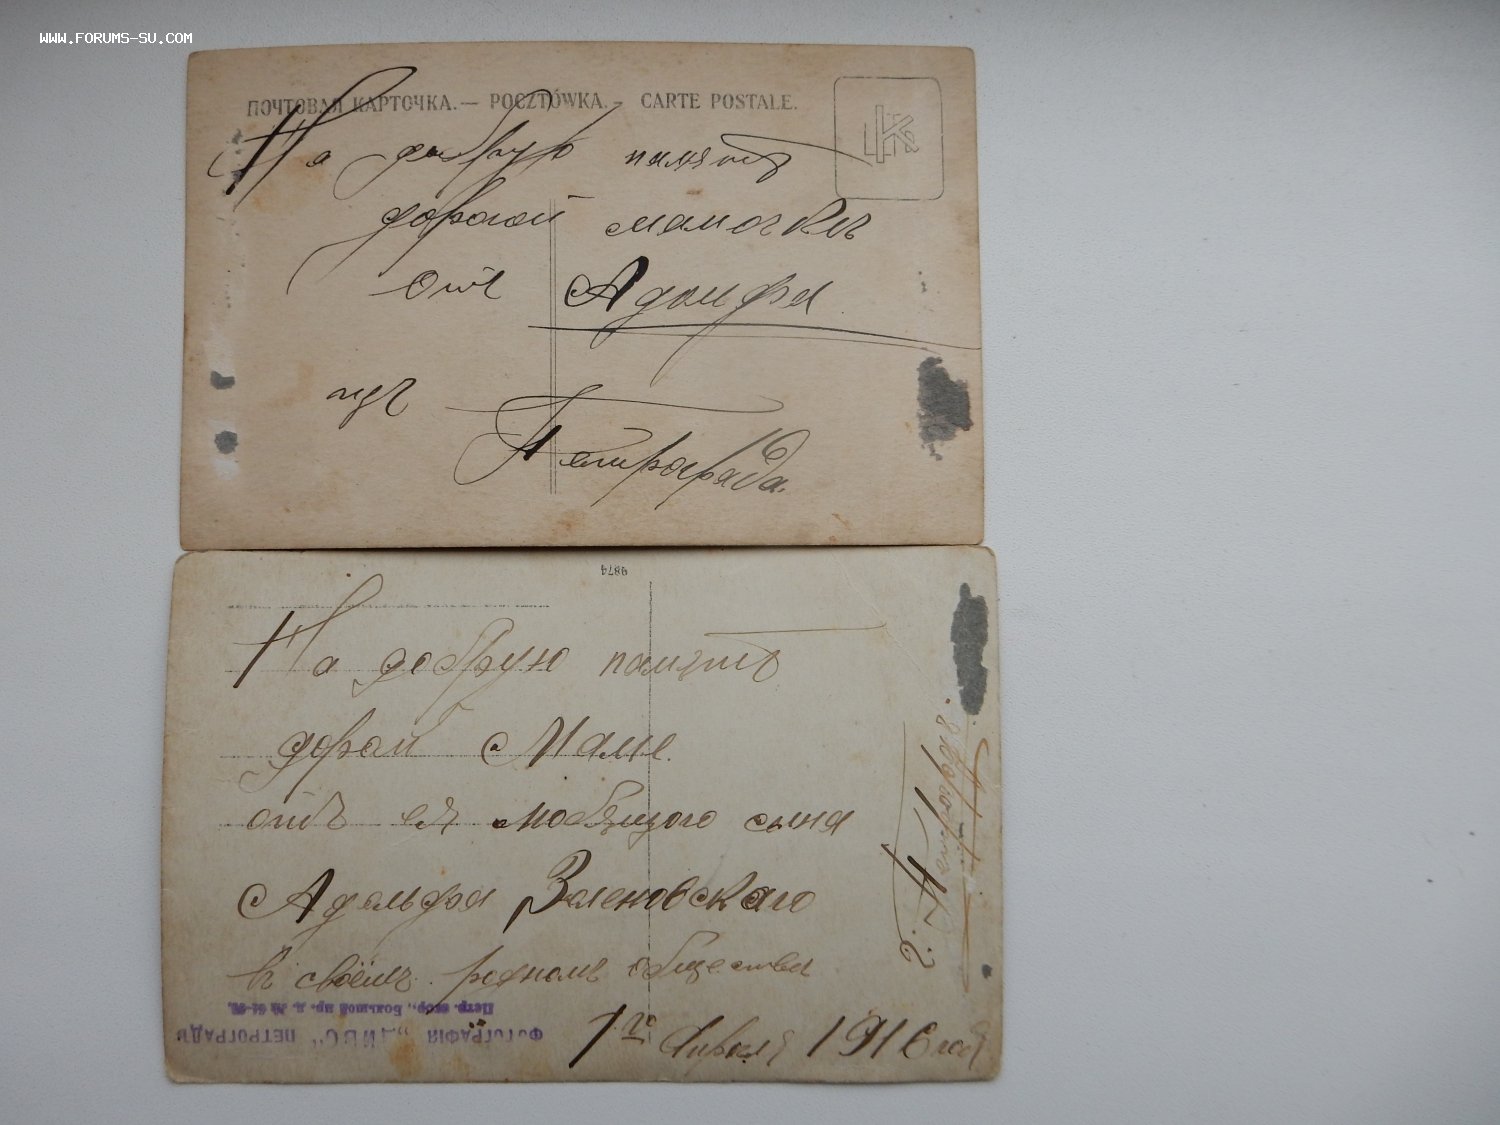 WWW.FORUMS-SU.COM
ПОЧТОВАЯ КАРТОЧКА.— POCZTÓWKA.— CARTE POSTALE.
На добрую память
дорогой мамочкѣ
отъ Адольфа
изъ
Петрограда.
9874
На добрую память
дорогой Маме.
отъ ея любящего сына
Адольфа Зеленовскаго
въ своёмъ родномъ обществѣ
1го Апреля 1916 года
ФОТОГРАФІЯ „ ПЕТРОГРАДЪ
Петр. стор., Большой пр. д. №
г. Петроградъ